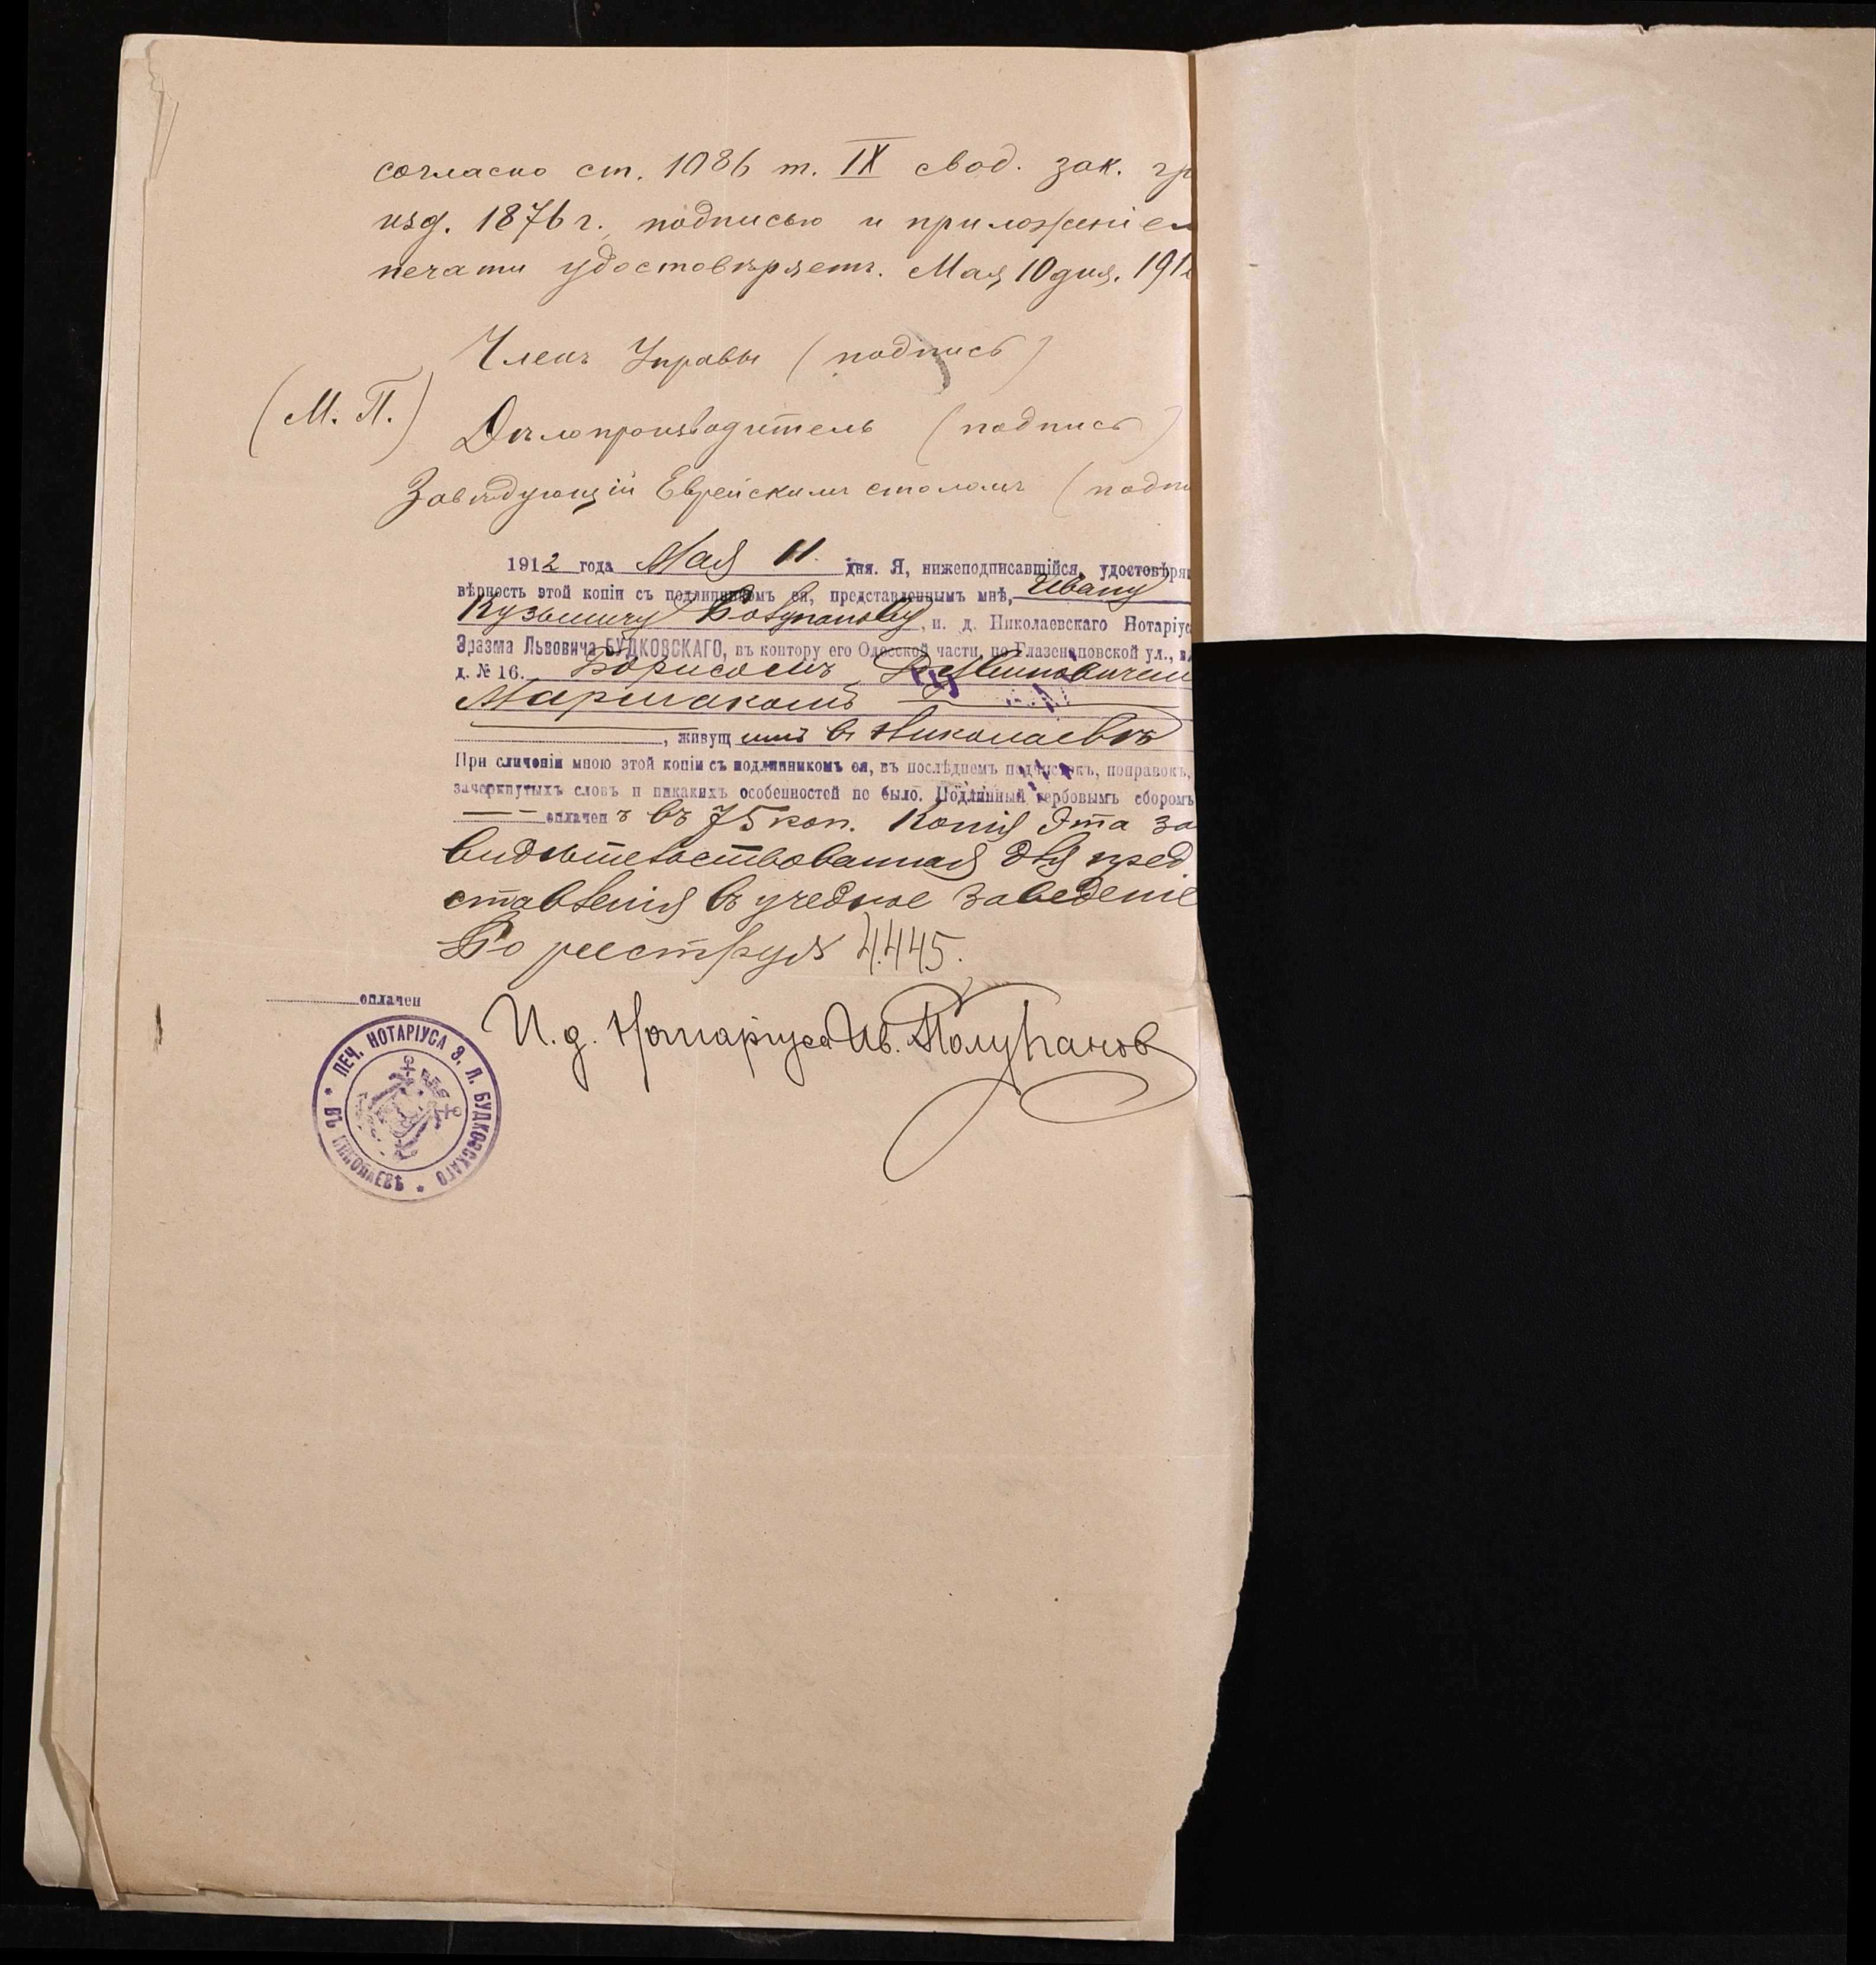 согласно ст. 1086 т. IX свод. зак. гр
изд. 1876 г., подписью и приложеніем
печати удостовѣряетъ. Мая 10 дня, 191
Членъ Управы (подпись)
(М. П.)
Дѣлопроизводитель (подпись)
Завѣдующій Еврейскимъ столомъ (подпи
1912 года Мая 11 дня. Я, нижеподписавшійся, удостовѣря
вѣрность этой копіи съ подлинникомъ ея, представленнымъ мнѣ, Ивану
Кузьмичу Полупанову, и. д. Николаевскаго Нотаріус
Эразма Львовича БУДКОВСКАГО, въ контору его Одесской части, по Глазенаповской ул., в
д. № 16. Борисомъ
Маршакомъ
, живущ имъ въ Николаевѣ
При сличеніи мною этой копіи съ подлинникомъ ея, въ послѣднемъ подчистокъ, поправокъ,
зачеркнутыхъ словъ и никакихъ особенностей не было. Подлинный гербовымъ сборомъ
оплачен ъ въ 75 коп. Копія эта за
видѣтельствованная для пред
ставленія въ учебное заведеніе
По реестру № 4445.
оплачен
И. д. Нотаріуса Ив. Полупанов
ПЕЧ. НОТАРІУСА Э. Л. БУДКОВСКАГО * ВЪ НИКОЛАЕВѢ *